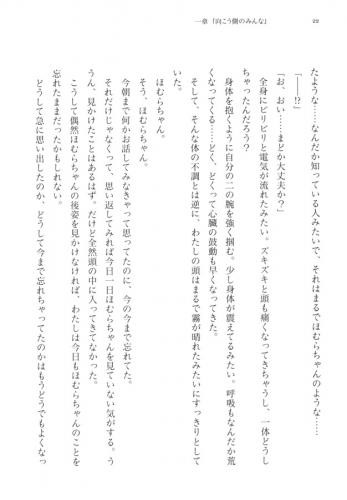 一章『向こう側のみんな』
たような……なんだか知っている人みたいで、それはまるでほむらちゃんのような……
「――!?」
「お、おい……まどか大丈夫か？」
全身にビリビリと電気が流れたみたい。ズキズキと頭も痛くなってきちゃうし、一体どうし
ちゃったんだろう？
身体を抱くように自分の二の腕を強く掴む。少し身体が震えてるみたい。呼吸もなんだか荒
くなってくる……どく、どくって心臓の鼓動も早くなってきた。
そして、そんな体の不調とは逆に、わたしの頭はまるで霧が晴れたみたいにすっきりとして
いた。
ほむらちゃん。
そう、ほむらちゃん。
今朝まで何かお話してみなきゃって思ってたのに、今の今まで忘れてた。
それだけじゃなくって、思い返してみれば今日一日ほむらちゃんを見ていない気がする。う
うん、見かけたことはあるはず。だけど全然頭の中に入ってきてなかった。
こうして偶然ほむらちゃんの後姿を見かけなければ、わたしは今日もほむらちゃんのことを
忘れたままだったかもしれない。
どうして急に思い出したのか、どうして今まで忘れちゃってたのかはもうどうでもよくなっ